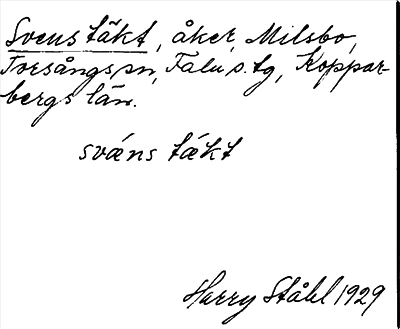 Svens täkt, åker, Milsbo,
Torsångs sn, Falu s. tg, Koppar-
bergs län.
sváns tákt
Harry Ståhl 1929